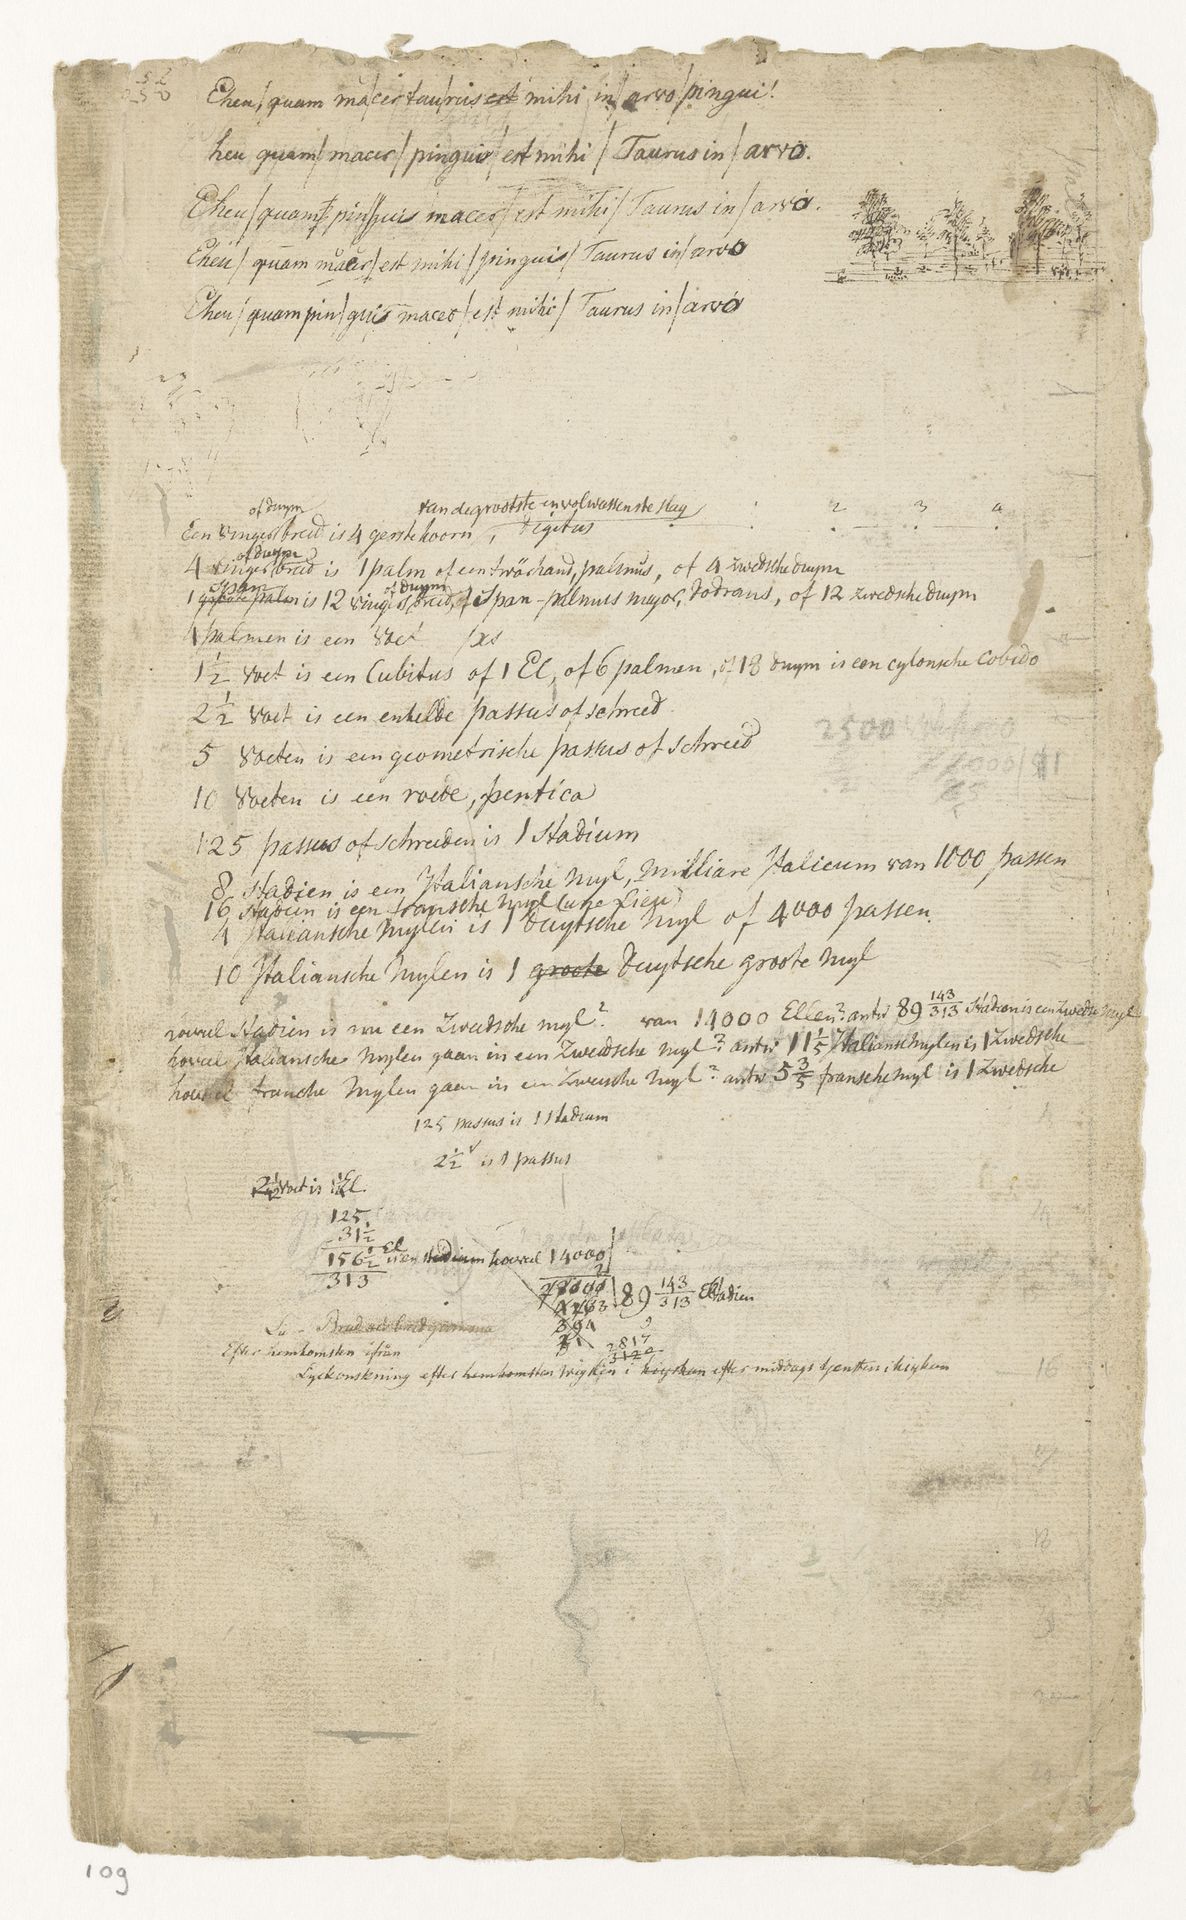 Eheu/quam ma/cer tau/rus est mihi in/arvo/pingui!
heu quam/macer/pinguis/est mihi/Taurus in/arvo.
Eheu/quam pin/guis macer/est mihi/Taurus in/arvo.
Eheu/quam macer/est mihi/pinguis/Taurus in/arvo
Eheu/quam pin/guis macer/est mihi/Taurus in/arvo
of duym van de grootste en volwassenste slag
Een vinger breed is 4 gerstekoorn, digitus 2 3 4
of duym
4 vinger breed is 1 palm of een dwarshand, palmus, of 4 zwedsche duym
span of duym
1 groote palm is 12 vinger breed, of Span-palmus major, dodrans, of 12 zwedsche duym
4 palmen is een voet pes
1 1/2 voet is een Cubitus of 1 El, of 6 palmen, of 18 duym is een cylonsche Cobido
2 1/2 voet is een enkelde passus of schreed
2500
5 voeten is een geometrische passus of schreed
10 voeten is een roede, pertica
125 passus of schreeden is 1 Stadium
8 Stadien is een Italiansche Myl, Milliare Italicum van 1000 passen
16 stadien is een fransche Myl (une Lieu)
4 Italiansche Mylen is 1 duytsche Myl of 4000 passen.
10 Italiansche Mylen is 1 groote duytsche groote Myl
hoveel Stadien is nu een Zweedsche myl? van 14000 Ellen? antw 89 143/313 Stadien is een Zwedse Myl
hoveel Italiansche Mylen gaan in een Zwedsche Myl? antw 11 1/5 Italianse Mylen is 1 Zwedsche
hoveel franche Mylen gaan in een Zweesche Myl? antw 5 3/5 fransche Myl is 1 Zwedsche
125 passus is 1 Stadium
2 1/2 v is 1 passus
2 1/2 voet is 1 1/4 El.
125
31 1/2
156 1/2 El is en stadium hoveel 14000
313
2
28000
89 143/313 Stadien
2817
Efter hemkomsten ifrån
Lyckonskning efter hemkomsten
16
109